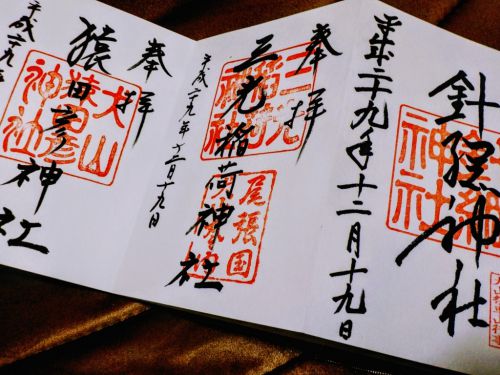 針綱神社
平成二九年十二月十九日
奉拝
三光稲荷神社
三光稲荷神社
尾張国
平成二九年十二月十九日
奉拝
猿田彦神社
犬山
猿田彦
神社
平成二九年